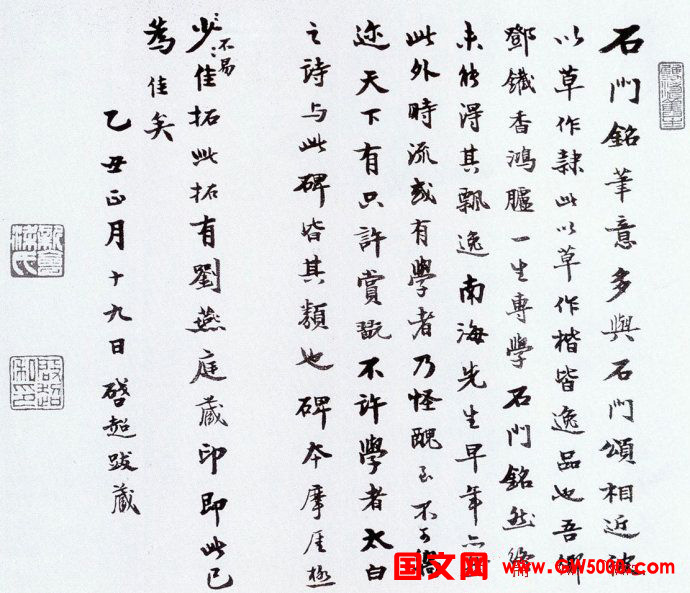 石門銘筆意多與石門頌相近彼
以草作隸此以草作楷皆逸品也吾鄉
鄧鐵香鴻臚一生專學石門銘然終
未能得其飄逸南海先生早年亦
此外時流或有學者乃怪醜至不可嚮
迩天下有只許賞翫不許學者太白
之詩與此碑皆其類也碑本摩厓極
少佳拓此拓有劉燕庭藏印即此已
不易
為佳矣
乙丑正月十九日啓超跋藏
新會梁氏
啟超私印
国文网 www.GW5000.com